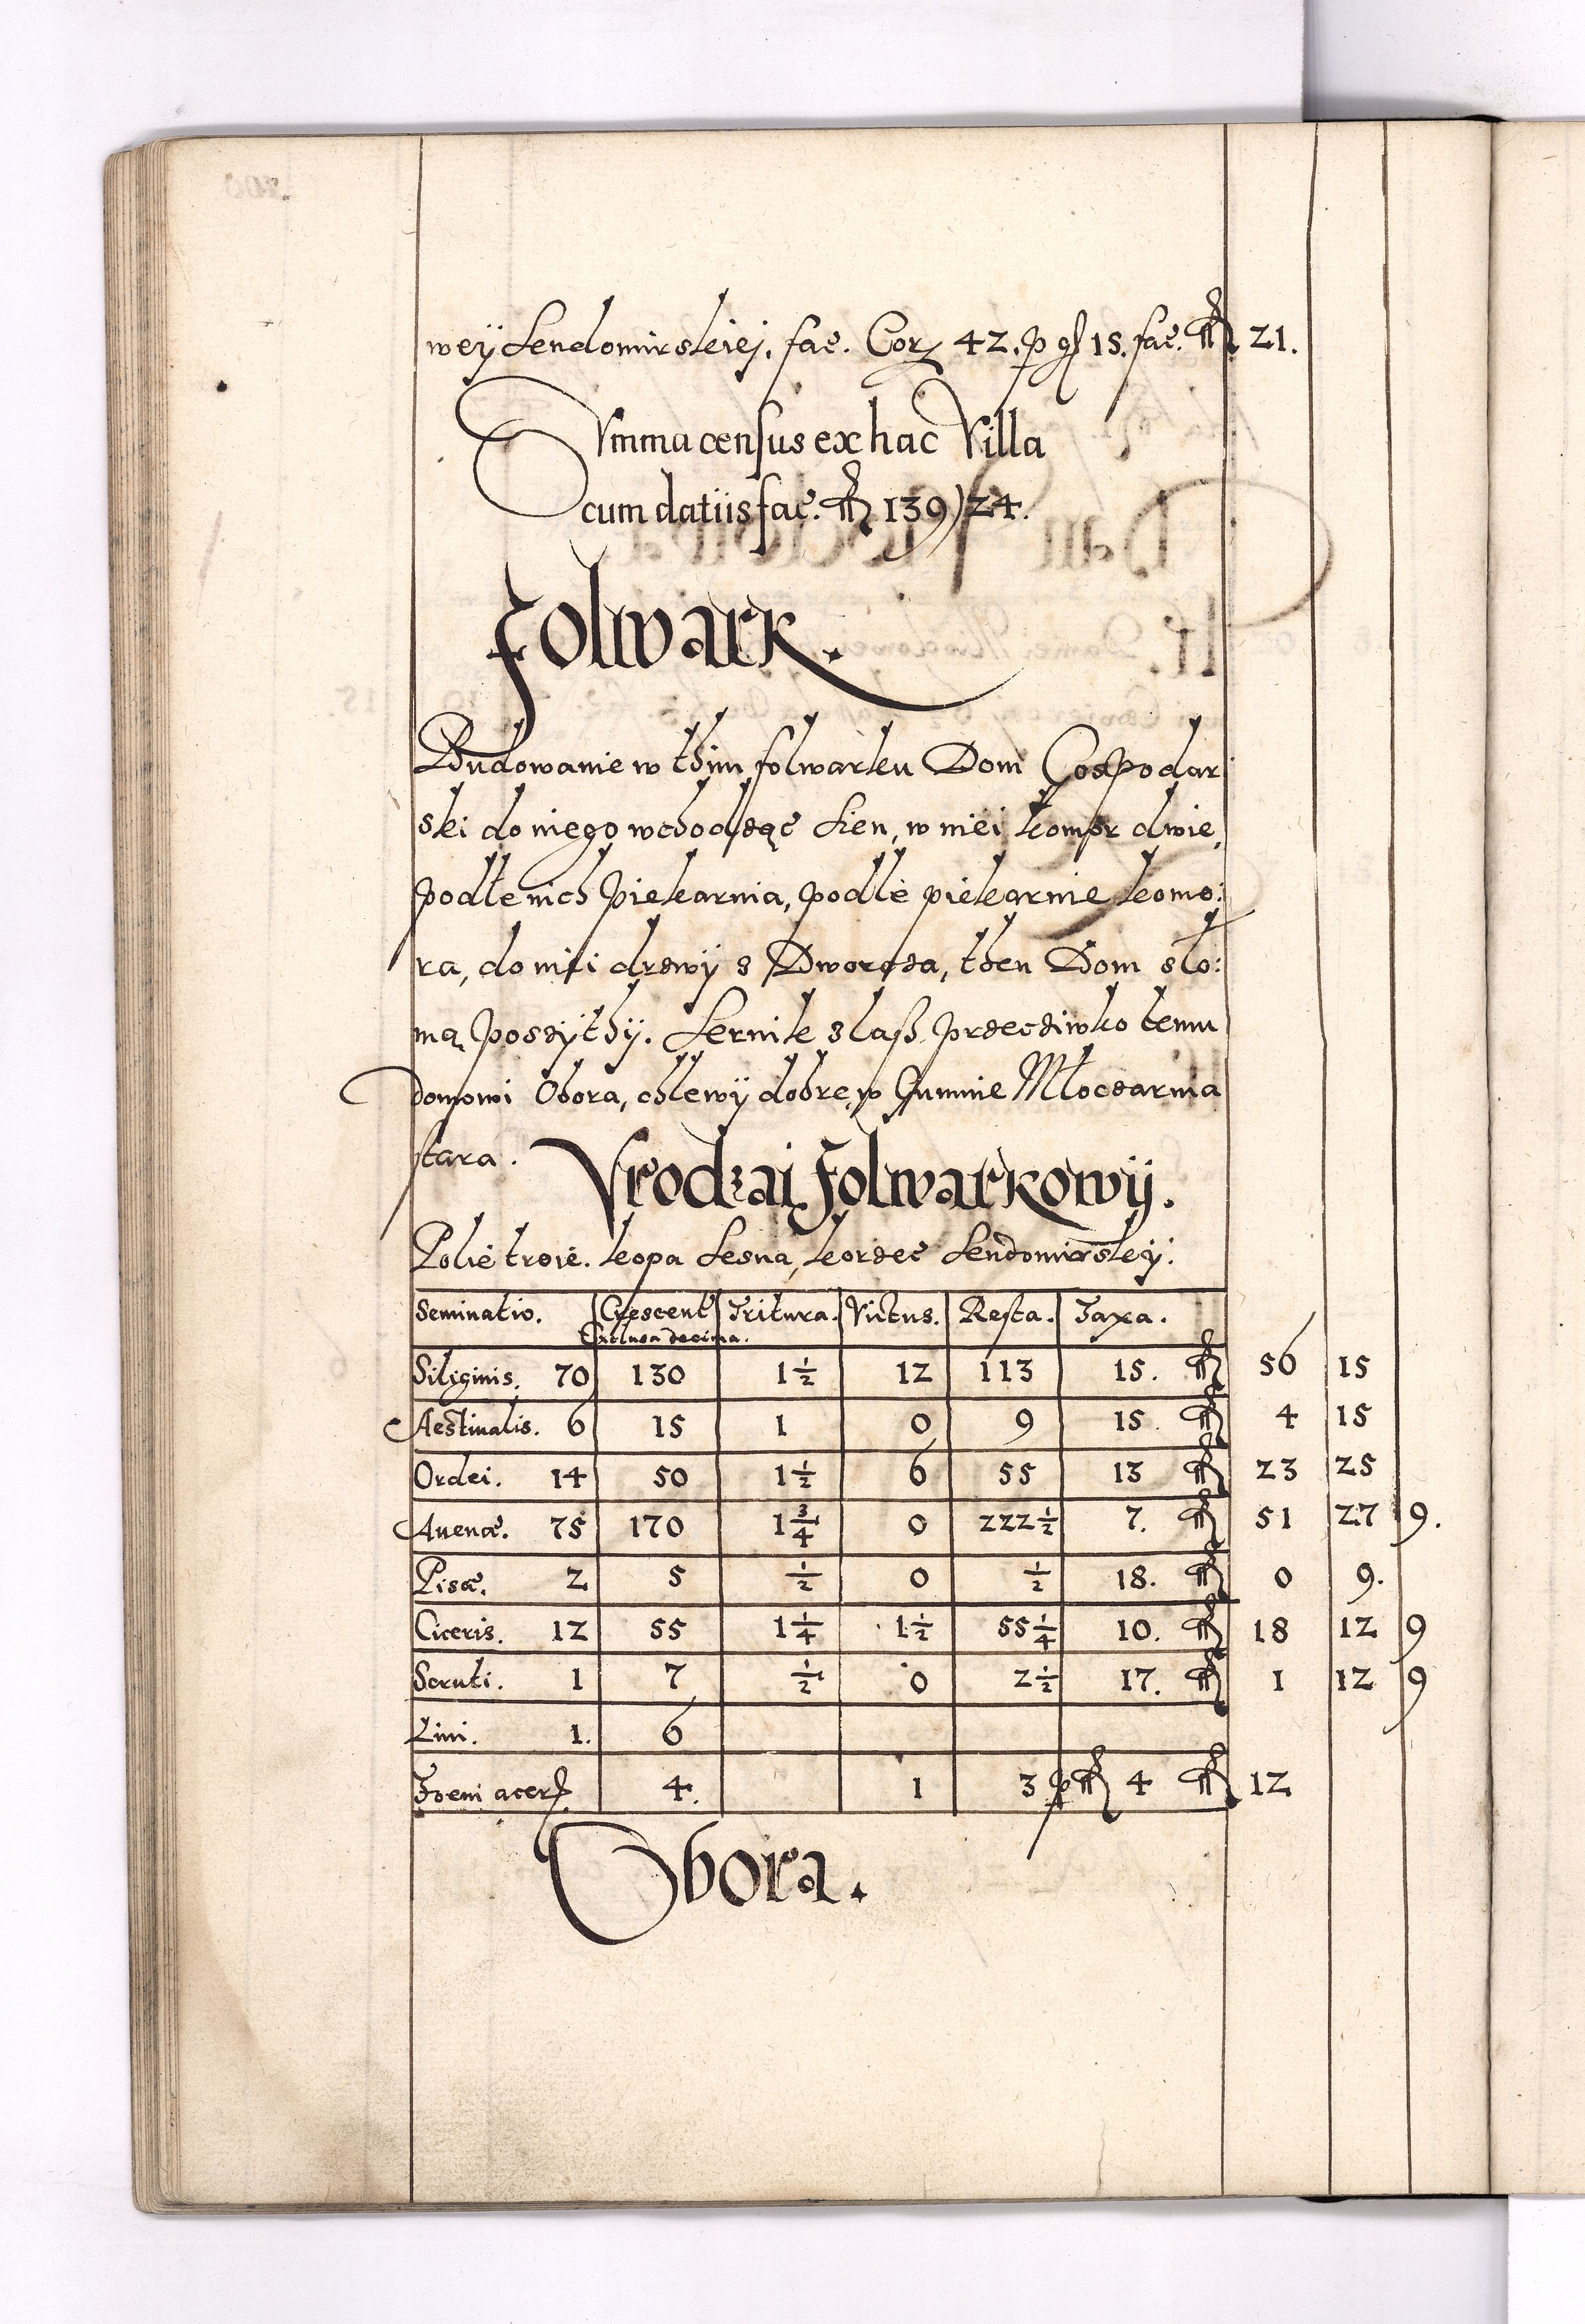 wey Sendomirskiej. fac. Corz 42. p gſ 15. fac. fl 21.
Summa census ex hac Villa
cum datiis fac. fl 139)24.
Folwark.
Budowanie w thim folwarku Dom Gospodar
ski do niego wchodząc Sien, w niei komor dwie,
podle nich Piekarnia, podle piekarnie komo:
ra, do niei drzwÿ z Dworcza, then Dom sło:
mą poszÿthÿ. Sernik z lasz przecziwko temu
domowi Obora, chlewÿ dobre, w Gumnie Młoczarnia
stara.
Vrodzai Folwarkowÿ.
Polie troie. kopa Lesna, korzec Sendomirskÿ.
Seminatio. Crescent Tritura. Victus. Resta. Taxa.
Exclusa decima.
Siliginis. 70 130 1½ 12 113 15. fl 56 15
Aestiualis. 6 15 1 0 9 15. fl 4 15
Ordei. 14 50 1½ 6 55 13 fl 23 25
Auenæ. 75 170 1¾ 0 222½ 7. fl 51 27 9.
Pisæ. 2 5 ½ 0 ½ 18. fl 0 9.
Ciceris. 12 55 1¼ 1½ 55¼ 10. fl 18 12 9
Scruti. 1 7 ½ 0 2½ 17. fl 1 12 9
Lini. 1. 6
Foeni acerſ 4. 1 3 p fl 4 fl 12
Obora.